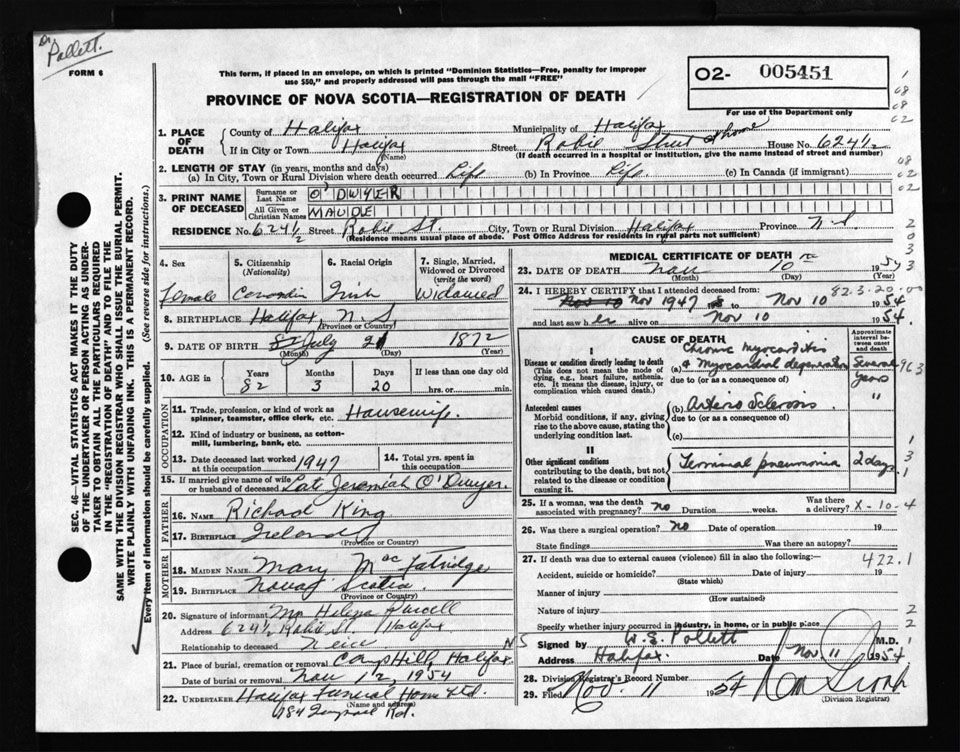 Dr Pollett.
FORM 6
This form, if placed in an envelope, on which is printed "Dominion Statistics—Free, penalty for improper
use $50," and properly addressed will pass through the mail "FREE"
PROVINCE OF NOVA SCOTIA—REGISTRATION OF DEATH
02- 005451
For use of the Department only
SEC. 46—VITAL STATISTICS ACT MAKES IT THE DUTY
OF THE UNDERTAKER OR PERSON ACTING AS UNDER-
TAKER TO OBTAIN ALL THE PARTICULARS REQUIRED
IN THE "REGISTRATION OF DEATH" AND TO FILE THE
SAME WITH THE DIVISION REGISTRAR WHO SHALL ISSUE THE BURIAL PERMIT.
WRITE PLAINLY WITH UNFADING INK. THIS IS A PERMANENT RECORD.
Every item of information should be carefully supplied. (See reverse side for instructions.)
1. PLACE OF DEATH
County of Halifax Municipality of Halifax
If in City or Town Halifax (Name) Street Robie Street at home House No. 624½
(If death occurred in a hospital or institution, give the name instead of street and number)
2. LENGTH OF STAY (in years, months and days)
(a) In City, Town or Rural Division where death occurred Life (b) In Province Life. (c) In Canada (if immigrant)
3. PRINT NAME OF DECEASED
Surname or Last Name O'DWYER
All Given or Christian Names MAUDE
RESIDENCE No. 624½ Street Robie St. City, Town or Rural Division Halifax Province N.S.
(Residence means usual place of abode. Post Office Address for residents in rural parts not sufficient)
4. Sex Female
5. Citizenship (Nationality) Canadian
6. Racial Origin Irish
7. Single, Married, Widowed or Divorced (write the word) Widowed
8. BIRTHPLACE Halifax, N.S.
(Province or Country)
9. DATE OF BIRTH July 21 1872
(Month) (Day) (Year)
10. AGE in Years 82 Months 3 Days 20 If less than one day old
hrs. or min.
OCCUPATION
11. Trade, profession, or kind of work as
spinner, teamster, office clerk, etc. Housewife.
12. Kind of industry or business, as cotton-
mill, lumbering, bank, etc.
13. Date deceased last worked at this occupation 1947
14. Total yrs. spent in this occupation
15. If married give name of wife
or husband of deceased Late Jeremiah O'Dwyer.
FATHER
16. NAME Richard King
17. BIRTHPLACE Ireland
(Province or Country)
MOTHER
18. MAIDEN NAME Mary MacFatridge
19. BIRTHPLACE Nova Scotia
(Province or Country)
20. Signature of informant Helena Purcell
Address 624½ Robie St. Halifax
Relationship to deceased Neice
21. Place of burial, cremation or removal Camp Hill, Halifax N S
Date of burial or removal Nov 12, 1954
22. UNDERTAKER Halifax Funeral Home Ltd.
(Name and address)
MEDICAL CERTIFICATE OF DEATH
23. DATE OF DEATH Nov 10th 1954
(Month) (Day) (Year)
24. I HEREBY CERTIFY that I attended deceased from: 82.3.20.00
Nov 1947 to Nov 10 1954
and last saw her alive on Nov 10 1954.
CAUSE OF DEATH
Approximate interval between onset and death
I
Disease or condition directly leading to death
(This does not mean the mode of
dying, e.g., heart failure, asthenia,
etc. It means the disease, injury, or
complication which caused death.)
(a) Chronic Myocarditis
& Myocardial degeneration Several years
due to (or as a consequence of)
Antecedent causes
Morbid conditions, if any, giving
rise to the above cause, stating the
underlying condition last.
(b) Arterio Sclerosis "
due to (or as a consequence of)
(c)
II
Other significant conditions
contributing to the death, but not
related to the disease or condition
causing it.
Terminal pneumonia 2 days
25. If a woman, was the death
associated with pregnancy? no Duration weeks. Was there a delivery? X-10-4
26. Was there a surgical operation? no Date of operation 19
State findings Was there an autopsy?
27. If death was due to external causes (violence) fill in also the following:— 422.1
Accident, suicide or homicide? Date of injury 19
(State which)
Manner of injury
(How sustained)
Nature of injury
Specify whether injury occurred in industry, in home, or in public place
Signed by W. S. Pollett M.D.
Address Halifax. Date Nov 11 1954
28. Division Registrar's Record Number
29. Filed Nov. 11 1954
(Division Registrar)